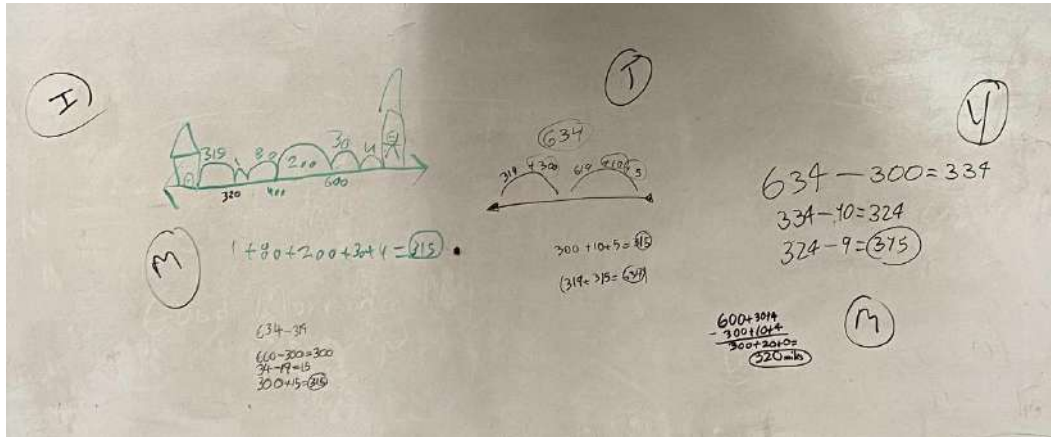 I
319 1 80 200 30 4
320 400 600
M
1+80+200+30+4=315
634-319
600-300=300
34-19=15
300+15=315
T
634
319 +300 619 +10 5
300+10+5=315
(319+315=634)
Y
634-300=334
334-10=324
324-9=315
600+30+4
- 300+10+4
300+20+0=
320 miles
M